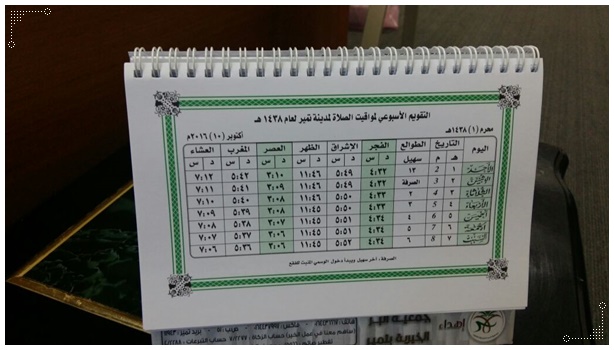 التقويم الأسبوعي لمواقيت الصلاة لمدينة تمير لعام ١٤٣٨ هـ
محرم (١) ١٤٣٨هـ أكتوبر (١٠) ٢٠١٦م
اليوم التاريخ الطوالع الفجر الإشراق الظهر العصر المغرب العشاء
هـ م سهيل د س د س د س د س د س د س
١ 2 ١٣ ٤:٣٢ ٥:٤٩ ١١:٤٦ ٣:١٠ ٥:٤٢ ٧:١٢
٢ 3 الصرفة ٤:٣٢ ٥:٤٩ ١١:٤٦ ٣:٠٩ ٥:٤١ ٧:١١
الثلاثاء ٣ 4 ٢ ٤:٣٣ ٥:٥٠ ١١:٤٦ ٣:٠٨ ٥:٤٠ ٧:١٠
الأربعاء ٤ 5 ٣ ٤:٣٣ ٥:٥٠ ١١:٤٥ ٣:٠٨ ٥:٣٩ ٧:٠٩
الخميس ٥ 6 ٤ ٤:٣٤ ٥:٥١ ١١:٤٥ ٣:٠٧ ٥:٣٨ ٧:٠٨
٦ 7 ٥ ٤:٣٤ ٥:٥١ ١١:٤٥ ٣:٠٦ ٥:٣٧ ٧:٠٧
٧ 8 ٦ ٤:٣٤ ٥:٥٢ ١١:٤٥ ٣:٠٦ ٥:٣٦ ٧:٠٦
الصرفة، آخر سهيل ويبدأ دخول الوسمي
إهداء جمعية البر
الخيرية بتمير